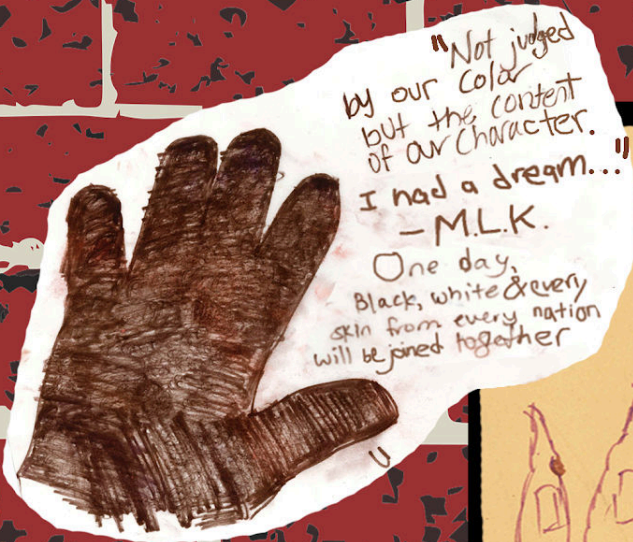 "Not judged
by our Color
but the content
of our Character.
I had a dream..."
– M.L.K.
One day,
Black, white & every
skin from every nation
will be joined together